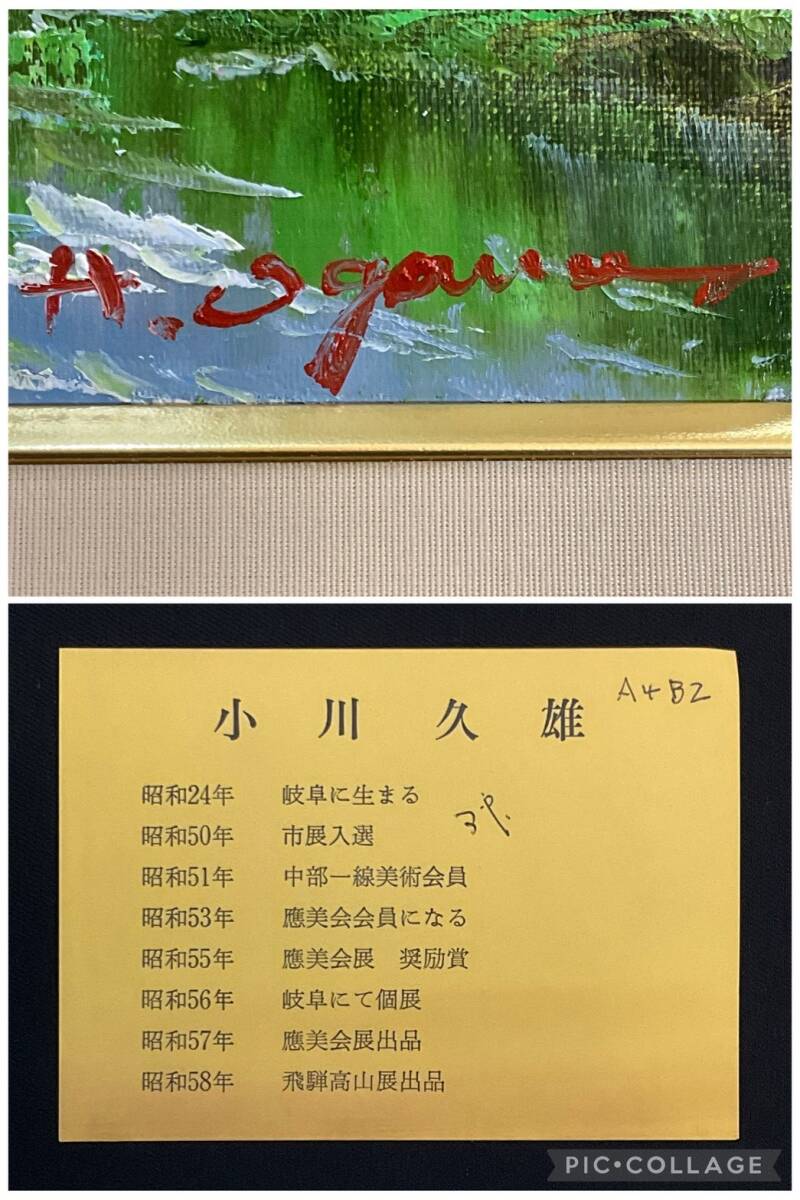 H. Ogawa
小川久雄
A4B2
昭和24年 岐阜に生まる
昭和50年 市展入選
昭和51年 中部一線美術会員
昭和53年 應美会会員になる
昭和55年 應美会展 奨励賞
昭和56年 岐阜にて個展
昭和57年 應美会展出品
昭和58年 飛騨高山展出品
PIC•COLLAGE